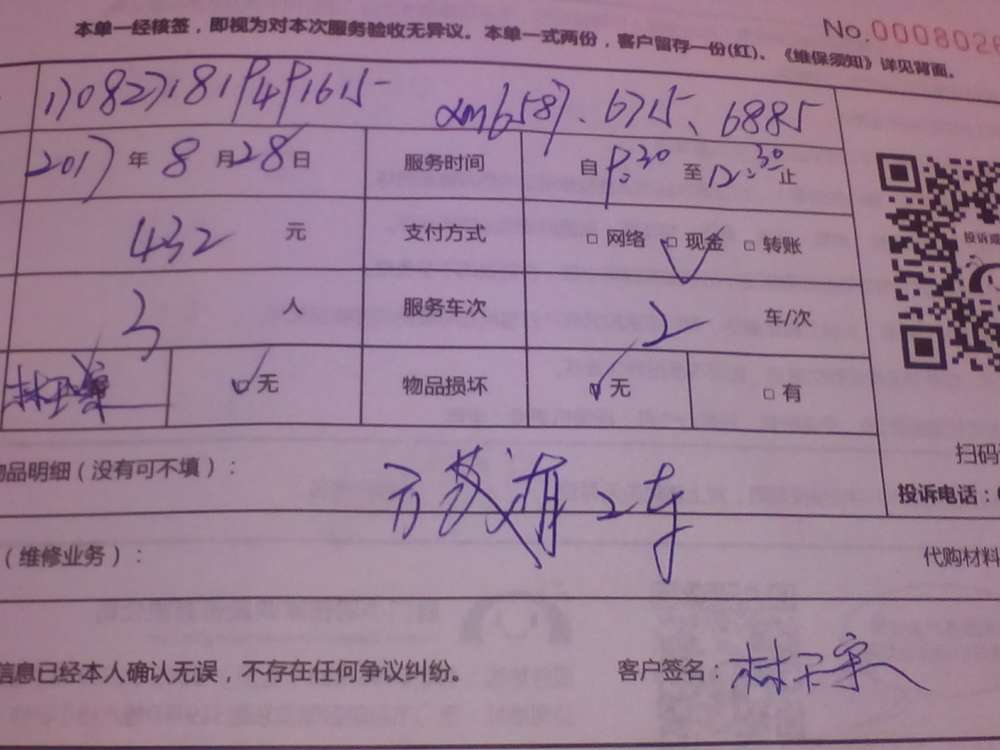 No.000802
本单一经核签，即视为对本次服务验收无异议。本单一式两份，客户留存一份(红)、《维保须知》详见背面。
6587、6715、6885
2017年8月28日 服务时间 自9:30至12:30止
432元 支付方式 □网络 □现金 □转账
3人 服务车次 2车/次
□无 物品损坏 □无 □有
物品明细（没有可不填）：
2车
扫码
投诉电话：
（维修业务）： 代购材料
信息已经本人确认无误，不存在任何争议纠纷。 客户签名：林天宇